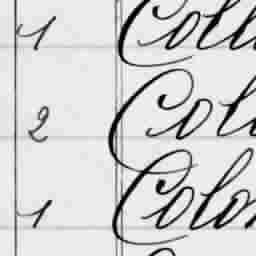 1 Coll
2 Col
1 Colo